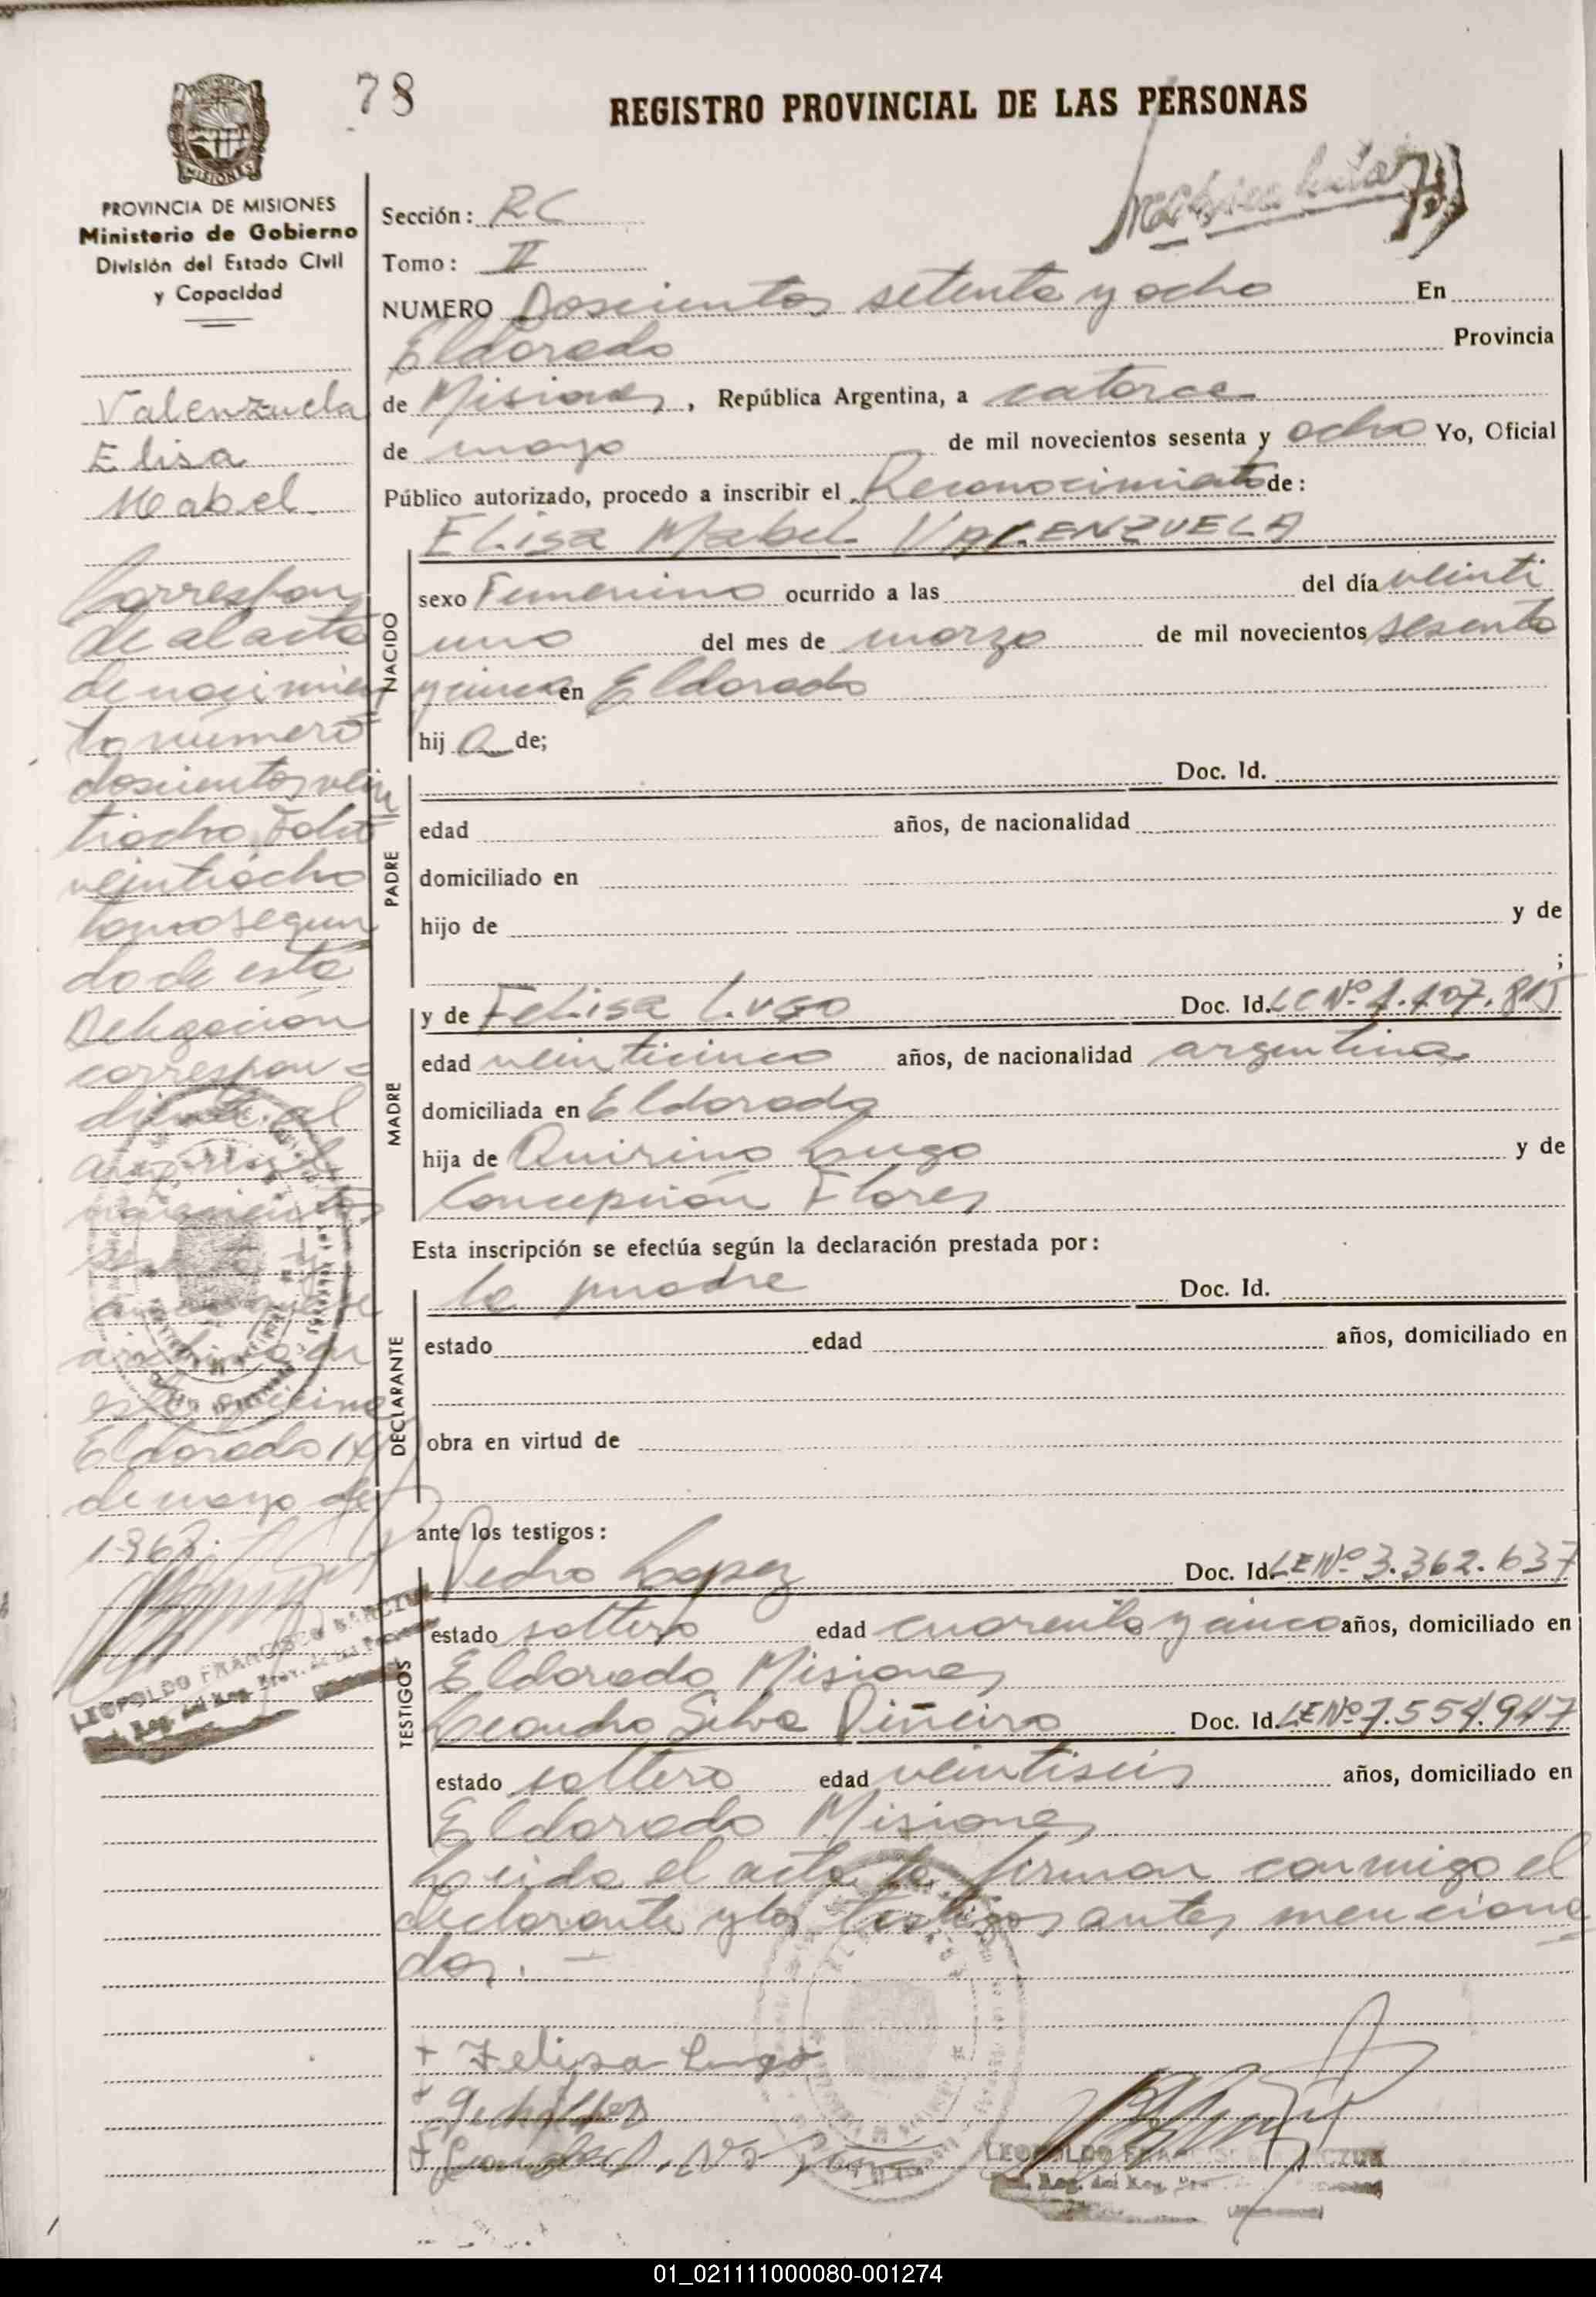 78
REGISTRO PROVINCIAL DE LAS PERSONAS
MISIONES
PROVINCIA DE MISIONES
Ministerio de Gobierno
División del Estado Civil
y Capacidad
Valenzuela
Elisa
Mabel
Correspon
de al acta
de nacimien
to número
doscientos vein
tiocho Folio
veintiocho
tomo segun
do de esta
Delegación
correspon=
diente al
año mil
novecientos
sesenta y
archiva en
esta oficina
Eldorado 14
de mayo de
1968.
LEOPOLDO FRANCISCO
Sección: RC
Tomo: II
NUMERO Doscientos setenta y ocho En
Eldorado Provincia
de Misiones, República Argentina, a catorce
de mayo de mil novecientos sesenta y ocho Yo, Oficial
Público autorizado, procedo a inscribir el Reconocimiento de:
Elisa Mabel VALENZUELA
NACIDO
sexo Femenino ocurrido a las del día veinti
uno del mes de marzo de mil novecientos sesenta
y cinco en Eldorado
hij a de;
PADRE
Doc. Id.
edad años, de nacionalidad
domiciliado en
hijo de y de
;
MADRE
y de Felisa Lugo Doc. Id. LC Nº 1.107.815
edad veinticinco años, de nacionalidad argentina
domiciliada en Eldorado
hija de Quirino Lugo y de
Concepción Flores
Esta inscripción se efectúa según la declaración prestada por:
DECLARANTE
la madre Doc. Id.
estado edad años, domiciliado en
obra en virtud de
ante los testigos:
TESTIGOS
Pedro Lopez Doc. Id. LE Nº 3.362.637
estado soltero edad cuarenta y cinco años, domiciliado en
Eldorado Misiones
Leandro Silva Piñeiro Doc. Id. LE Nº 7.554.947
estado soltero edad veintiseis años, domiciliado en
Eldorado Misiones
Leida el acta la firman conmigo el
declarante y los testigos antes menciona
dos. —
+ Felisa Lugo
LEOPOLDO
01_021111000080-001274